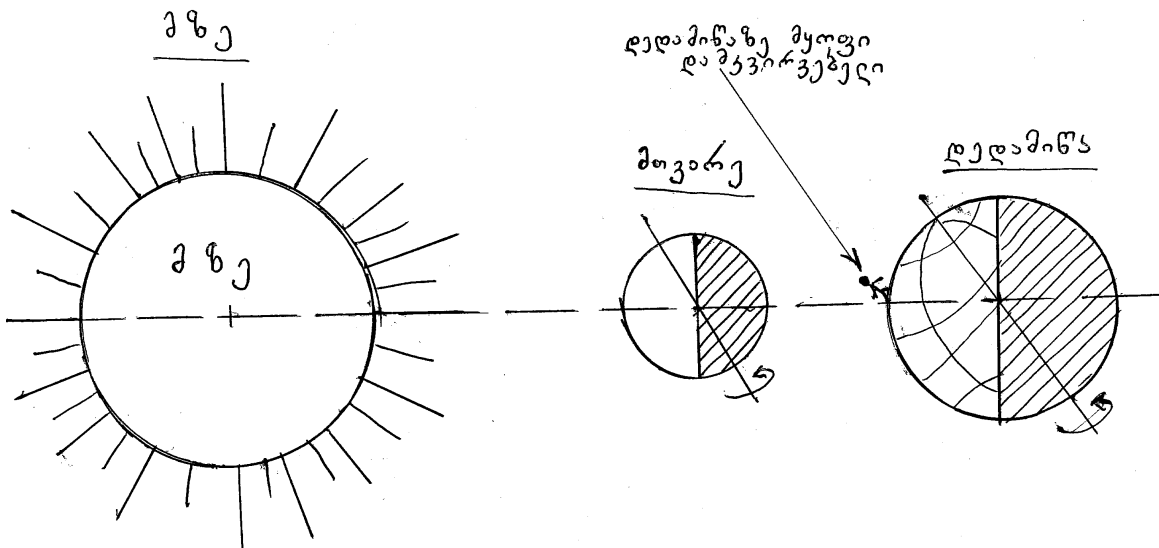 მზე
დედამიწაზე მყოფი
დამკვირვებელი
მთვარე
დედამიწა
მზე